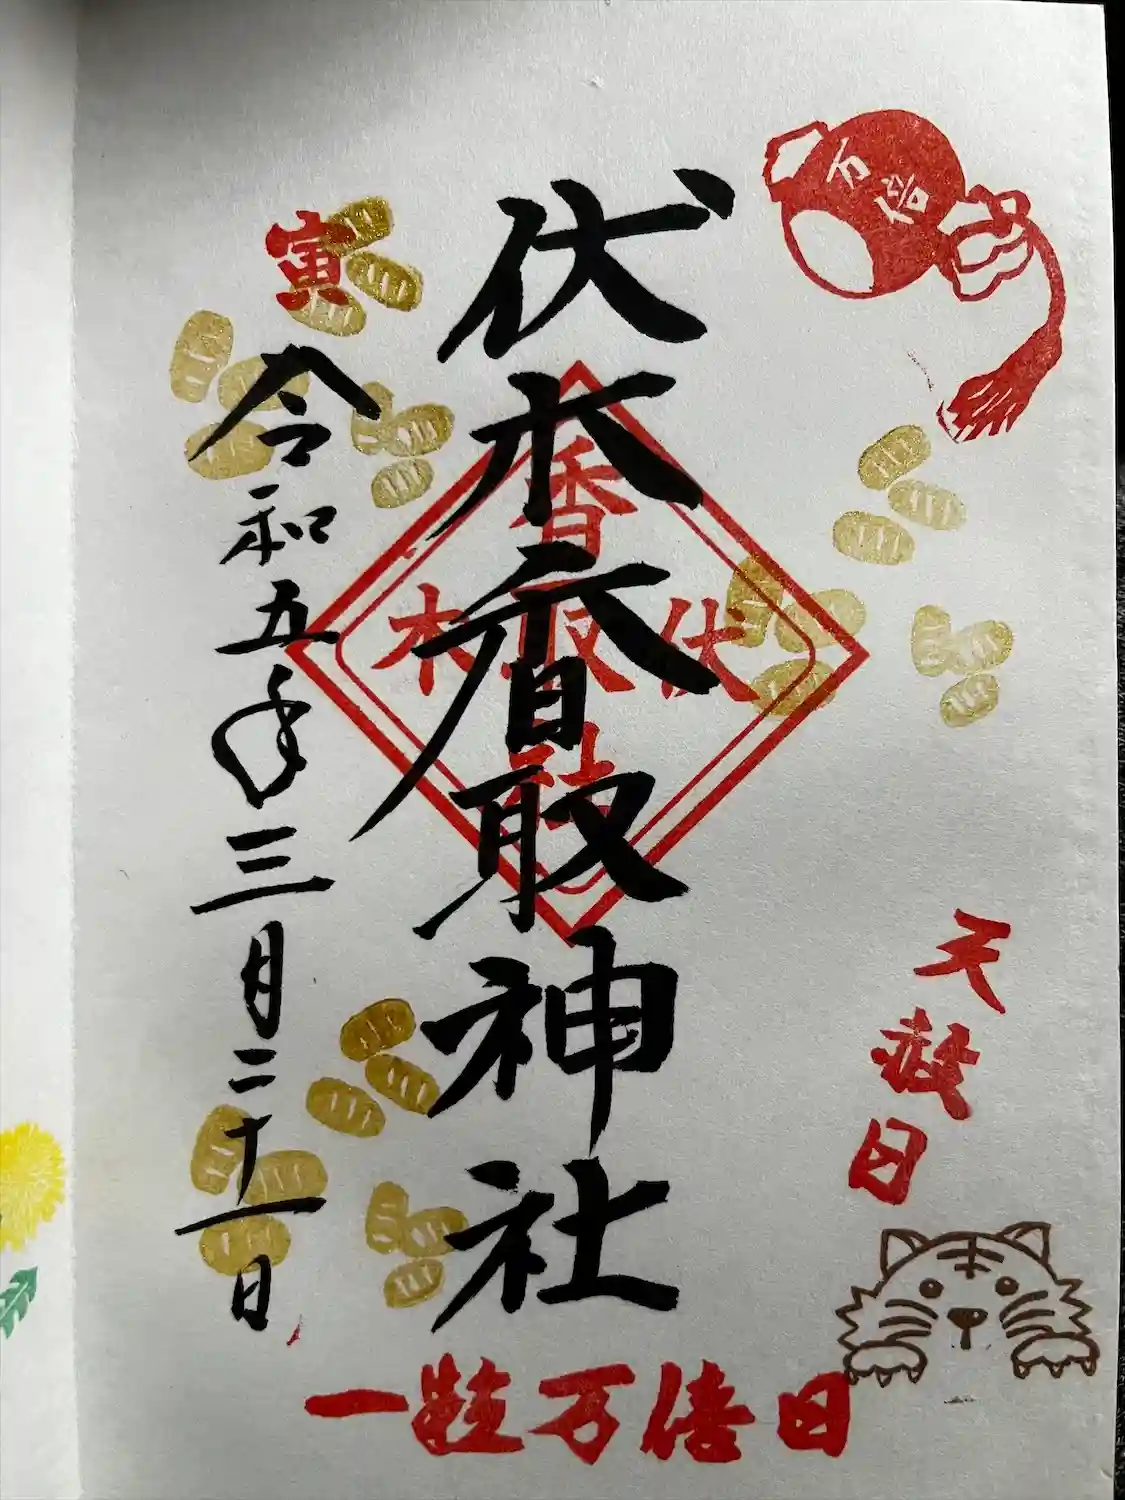 万倍
伏木香取神社
香
伏取木
社
天赦日
寅
令和五年三月二十一日
一粒万倍日